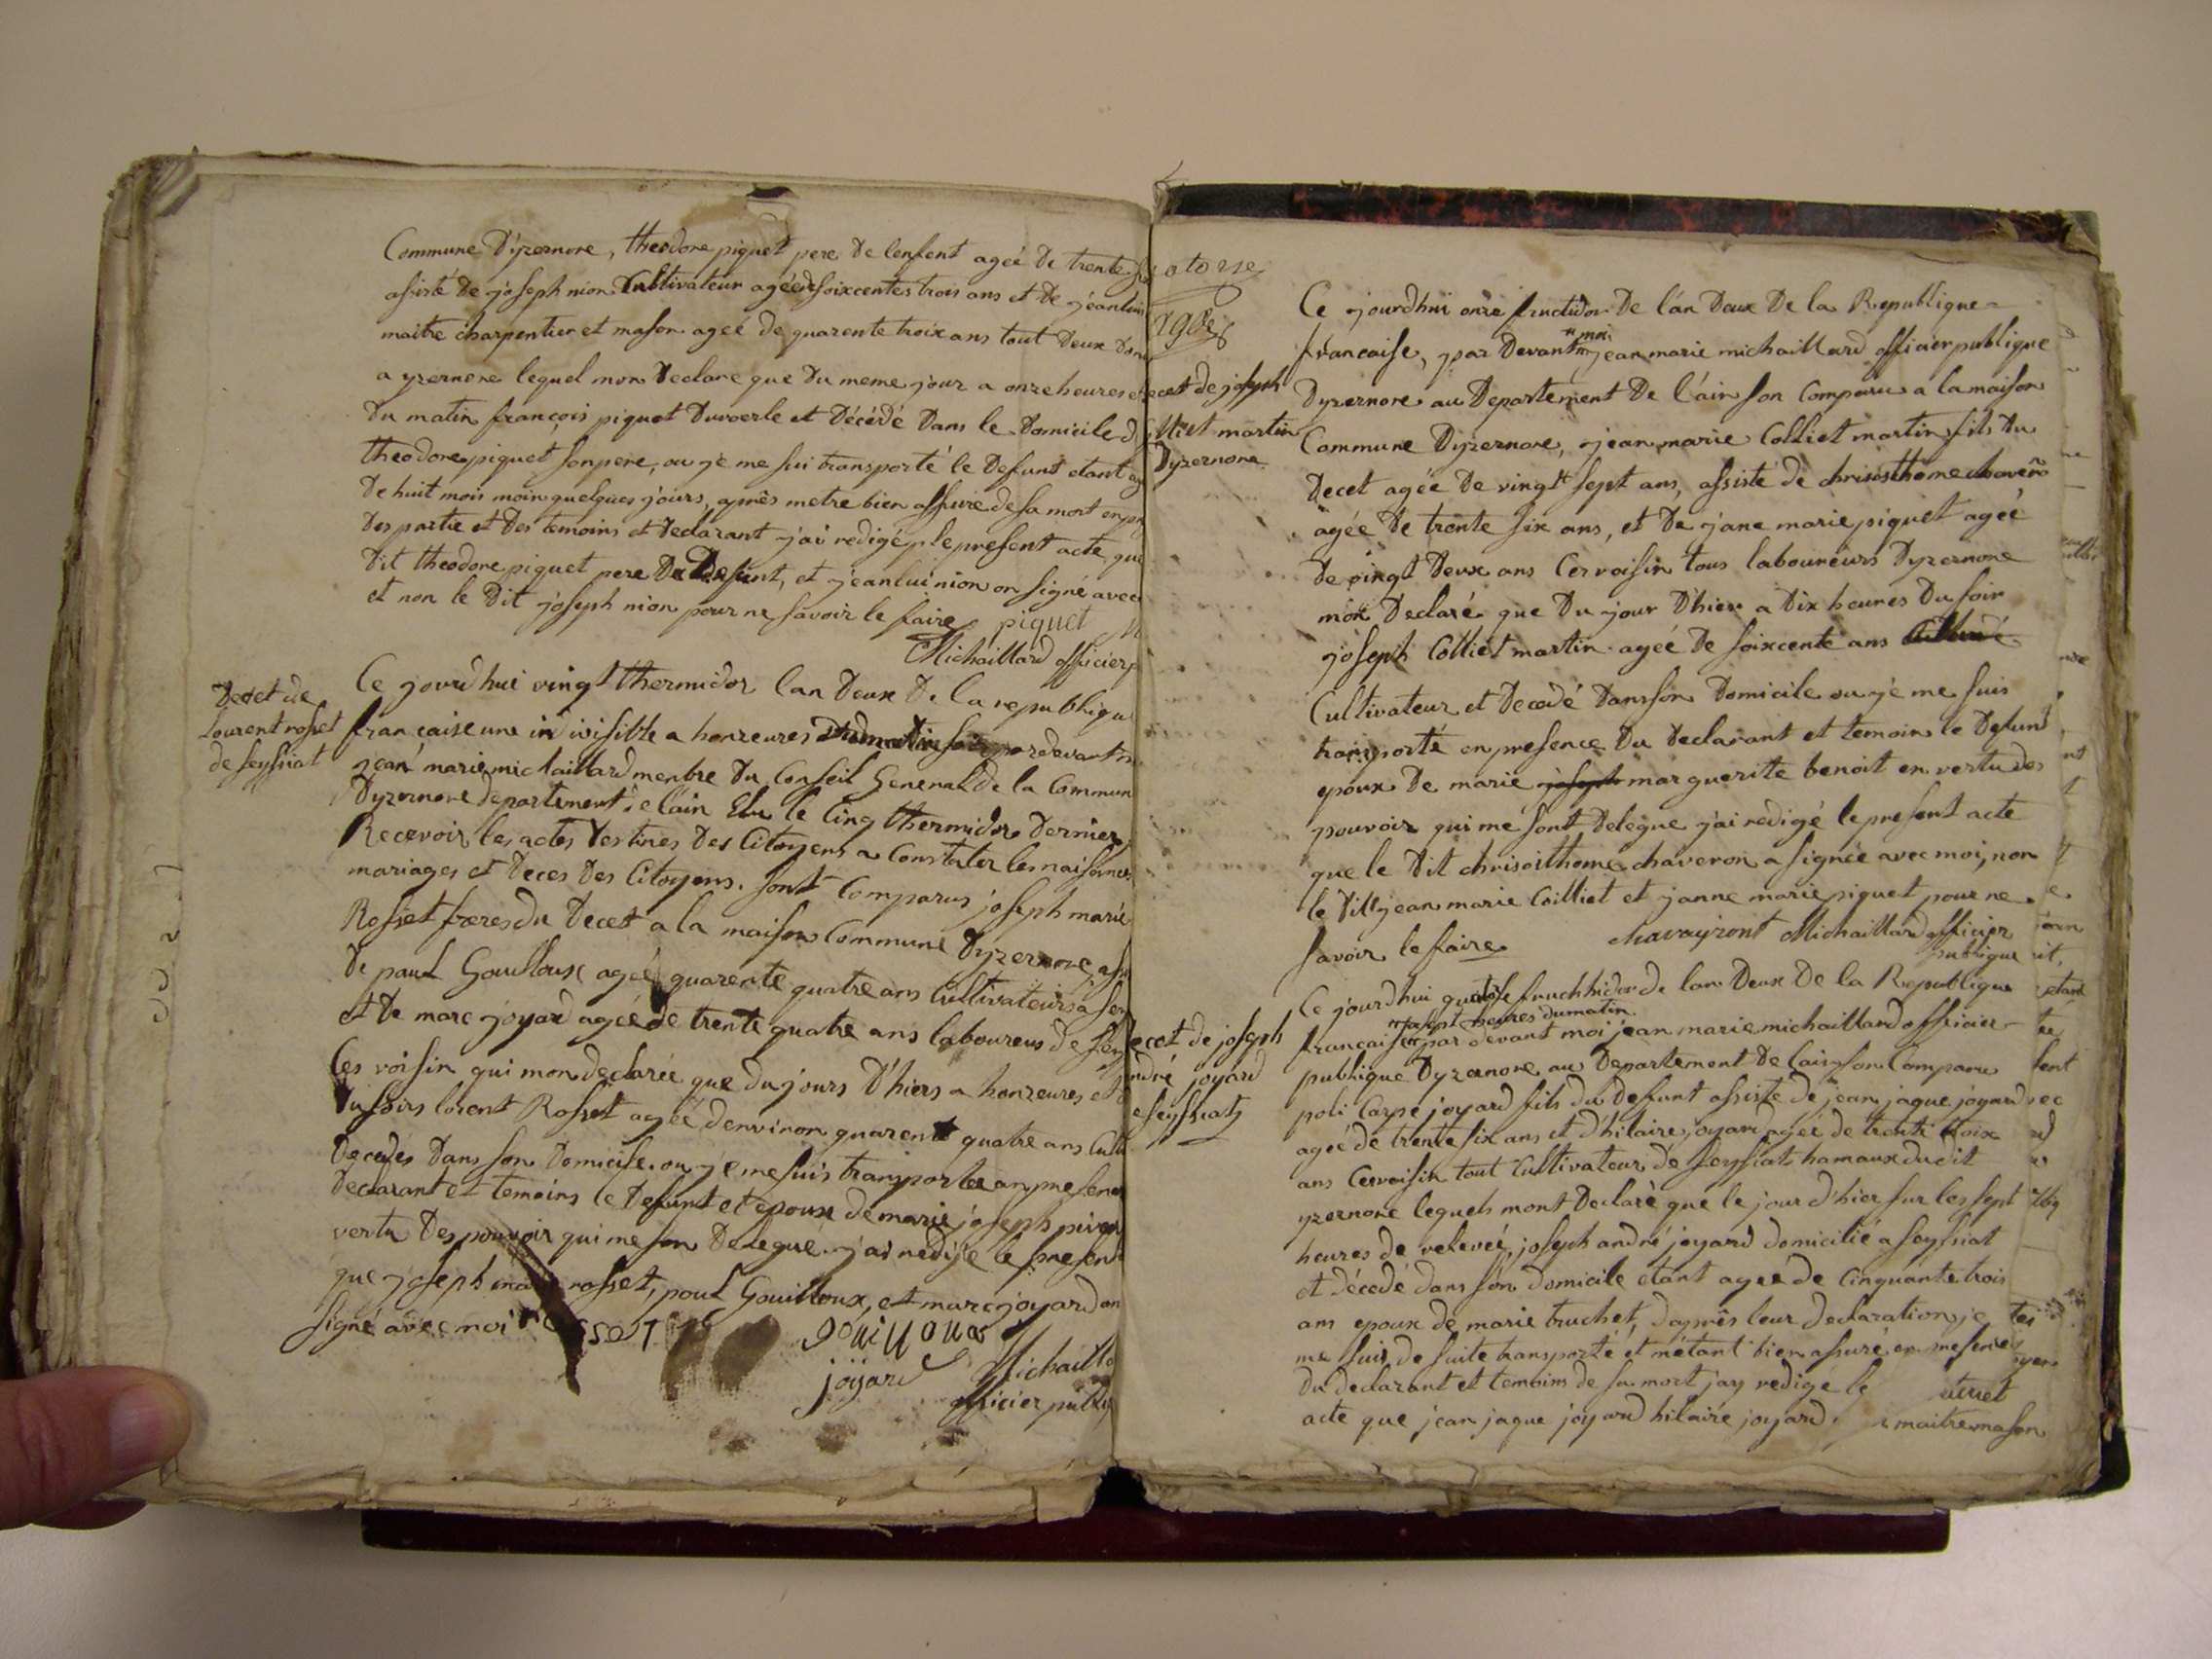 Commune Dÿzernore, theodore piquet pere de lenfent ageé de trente
assisté de joseph nion Cultivateur agée de soixcentes trois ans et de jeanluis
maitre charpentier et mason ageé de quarente troix ans tout deux
a yzernore lequel mon declare que du meme jour a onze heures
du matin françois piquet et décédé dans le domicile
theodore piquet son pere, ou je me sui transporté le defunt etant
de huit mois moin quelques jours, après metre bien assuré de sa mort en
des partie et des temoins et declarant j'ai redigé le present acte que
dit theodore piquet pere du defunt, et jeanlui nion on signé avec
et non le dit joseph nion pour ne savoir le faire piquet
Michaillard officier
decet de
Lourent rosset
de seyssiat
Ce jourdhui vingt thermidor lan deux de la republique
française une indivisible a honzeures du matin pardevant
jean marie michaillard menbre du Conseil General de la Commun
Dyzernore departement de lain Elu le Cinq thermidor dernier
Recevoir les actes destines des Citoyens a Constater les naisances
mariages et deces des Citoyens. sont Comparus joseph marie
Rosset freres du decet a la maison Commune Dyzernore
de paul Gouilloux ageé quarente quatre ans Cultivateurs a
et de marc joyard ageé de trente quatre ans laboureurs de
Ces voisin qui mon declarée que du jours d'hiers a honzeures et
du soirs lorent Rosset agée denviron quarente quatre ans
decedés dans son domicile ou je me suis transportee an presence
declarant et temoins le defunt et epoux de marie joseph
vertu des pouvoir qui me son delegué j'ai redijé le present
que joseph marie rosset, poul Gouilloux, et marc joyard on
signé avec moi rosset
gouilloux
joyard
Michailla
officier public
decet de joseph
Colliet martin
Dyzernore
Ce jourdhui onze fructidor de l'an deux de la Republique
francaise, par devant moi jean marie michaillard officier publique
Dyzernore au Departement de l'ain son Comparu a la maison
Commune Dyzernore, jean marie Colliet martin fils du
decet agée de vingt sept ans, assisté de chrisosthome chaveron
agée de trente six ans, et de jane marie piquet ageé
de vingt deux ans Cervoisin tous laboureurs Dyzernore
mon declaré que du jour d'hier a dix heures du soir
joseph Colliet martin ageé de soixcente ans
Cultivateur et decedé dans son domicile ou je me suis
transporté en presence du declarant et temoin le defunt
epoux de marie joseph marguerite benoit en vertu des
pouvoir qui me sont delegue j'ai redigé le present acte
que le dit chrisosthome chaveron a signée avec moi, non
le dit jean marie Coilliet et janne marie piquet pour ne
savoir le faire chavayront Michaillard officier
publique
decet de joseph
andré joyard
de seyssiat
Ce jourdhui quatorse fruchtidor de lan deux de la Republique
a sept heures du matin
francaise par devant moi jean marie michaillard officier
publique Dyzernore au departement de lain son Comparu
poli Carpe joyard fils du defunt assiste de jean jaque joyard
ageé de trente six ans et d'hilaire joyard ageé de trente troix
ans Cervoisin tout Cultivateur de seyssiat hamaux dudit
yzernore lequels mont declaré que le jour d'hier sur les sept
heures de relevée, joseph andré joyard domicilié a seyssiat
et décedé dans son domicile etant ageé de Cinquante trois
ans epoux de marie truchet, daprês leur declaration je
me suis de suite transporté et métant bien assuré en presence
du declarant et temoins de sa mort jay redige le
acte que jean jaque joyard hilaire joyard
maitre mason